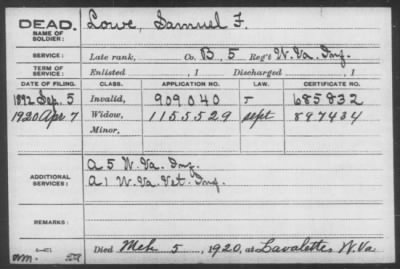 DEAD.
NAME OF SOLDIER:
Lowe, Samuel F.
SERVICE:
Late rank, Co. B, 5 Reg't W. Va. Inf.
TERM OF SERVICE:
Enlisted , 1 Discharged , 1
DATE OF FILING. CLASS. APPLICATION NO. LAW. CERTIFICATE NO.
1892 Sep. 5 Invalid, 909040 685832
1920 Apr 7 Widow, 1155529 Sept 897434
Minor,
ADDITIONAL SERVICES:
A 5 W. Va. Inf.
A 1 W. Va. Vet. Inf.
REMARKS:
Died Mch 5, 1920, at Lavalette W. Va